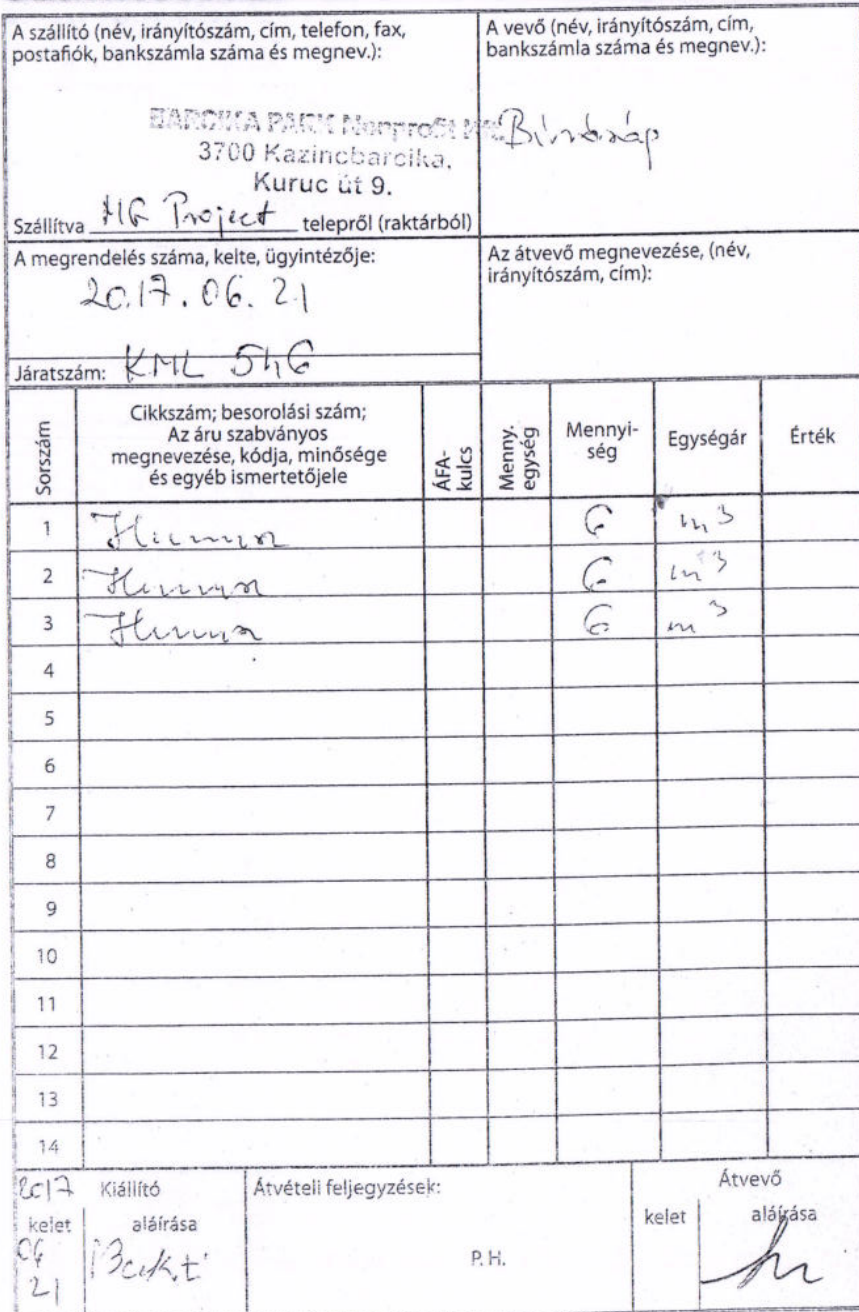 A szállító (név, irányítószám, cím, telefon, fax,
postafiók, bankszámla száma és megnev.):
BARCIKA PARK Nonprofit Kft.
3700 Kazincbarcika,
Kuruc út 9.
Szállítva MG Project telepről (raktárból)
A vevő (név, irányítószám, cím,
bankszámla száma és megnev.):
A megrendelés száma, kelte, ügyintézője:
2017.06.21
Járatszám: KML 546
Az átvevő megnevezése, (név,
irányítószám, cím):
Sorszám
Cikkszám; besorolási szám;
Az áru szabványos
megnevezése, kódja, minősége
és egyéb ismertetőjele
ÁFA-
kulcs
Menny.
egység
Mennyi-
ség
Egységár
Érték
1 Humusz 6 m3
2 Humusz 6 m3
3 Humusz 6 m3
4
5
6
7
8
9
10
11
12
13
14
2017 Kiállító
kelet aláírása
06
21
Átvételi feljegyzések:
P. H.
Átvevő
kelet aláírása